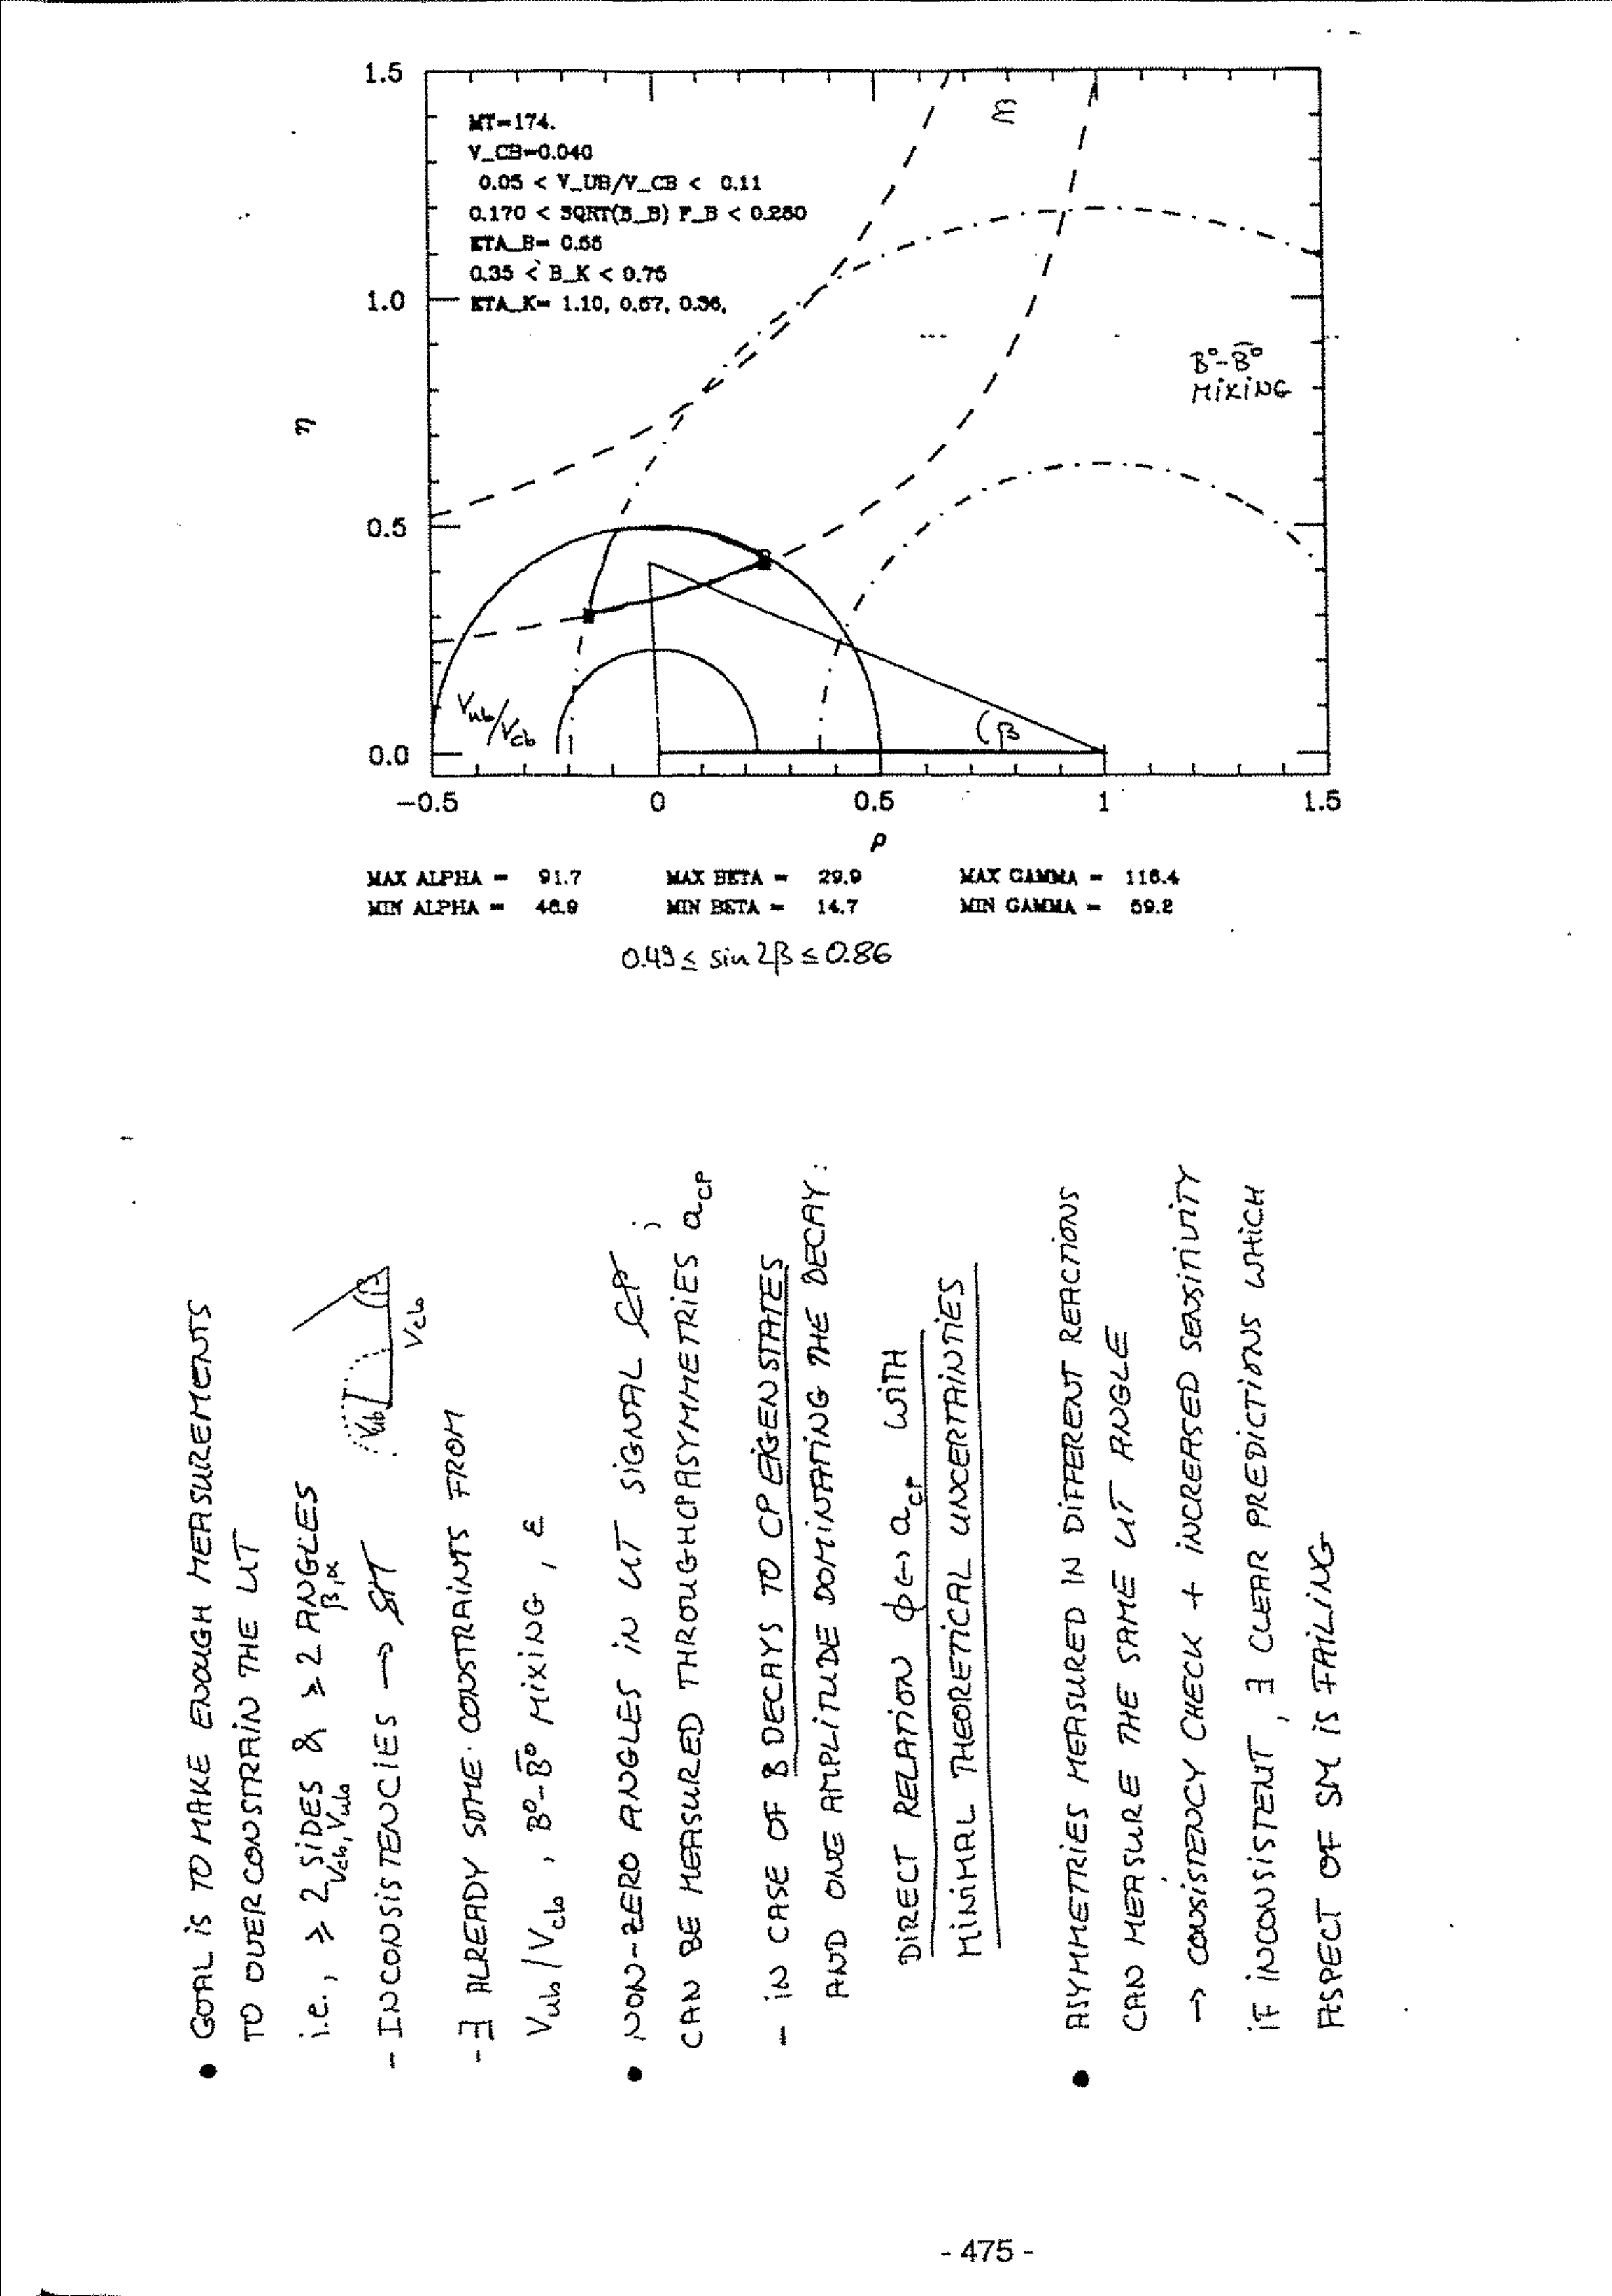 1.5
1.0
0.5
0.0
η
MT=174.
V_CB=0.040
0.05 < V_UB/V_CB < 0.11
0.170 < SQRT(B_B) F_B < 0.250
ETA_B= 0.55
0.35 < B_K < 0.75
ETA_K= 1.10, 0.57, 0.36,
ε
B⁰-B̄⁰
MIXING
Vub/Vcb
β
-0.5 0 0.5 1 1.5
ρ
MAX ALPHA = 91.7 MAX BETA = 29.9 MAX GAMMA = 116.4
MIN ALPHA = 46.9 MIN BETA = 14.7 MIN GAMMA = 59.2
0.49 ≤ sin 2β ≤ 0.86
• GOAL IS TO MAKE ENOUGH MEASUREMENTS
TO OVER CONSTRAIN THE UT
i.e., ≥ 2 SIDES & ≥ 2 ANGLES
Vcb, Vub β,α
Vub β
Vcb
- INCONSISTENCIES → SM
- ∃ ALREADY SOME CONSTRAINTS FROM
Vub/Vcb, B⁰-B̄⁰ MIXING, ε
• NON-ZERO ANGLES IN UT SIGNAL CP;
CAN BE MEASURED THROUGH CP ASYMMETRIES aCP
- IN CASE OF B DECAYS TO CP EIGENSTATES
AND ONE AMPLITUDE DOMINATING THE DECAY:
DIRECT RELATION ϕ↔aCP WITH
MINIMAL THEORETICAL UNCERTAINTIES
• ASYMMETRIES MEASURED IN DIFFERENT REACTIONS
CAN MEASURE THE SAME UT ANGLE
→ CONSISTENCY CHECK + INCREASED SENSITIVITY
IF INCONSISTENT, ∃ CLEAR PREDICTIONS WHICH
ASPECT OF SM IS FAILING
- 475 -